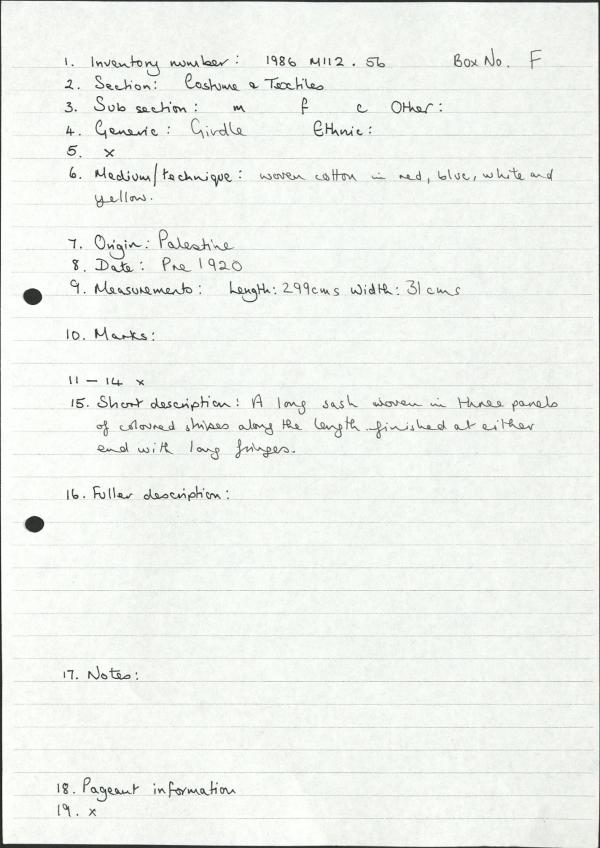 1. Inventory number: 1986 M112.56 Box No. F
2. Section: Costume & Textiles
3. Sub section: m f c Other:
4. Generic: Girdle Ethnic:
5. x
6. Medium/technique: woven cotton in red, blue, white and
yellow.
7. Origin: Palestine
8. Date: Pre 1920
9. Measurements: Length: 299cms Width: 31cms
10. Marks:
11 – 14 x
15. Short description: A long sash woven in three panels
of coloured stripes along the length finished at either
end with long fringes.
16. Fuller description:
17. Notes:
18. Pageant information
19. x